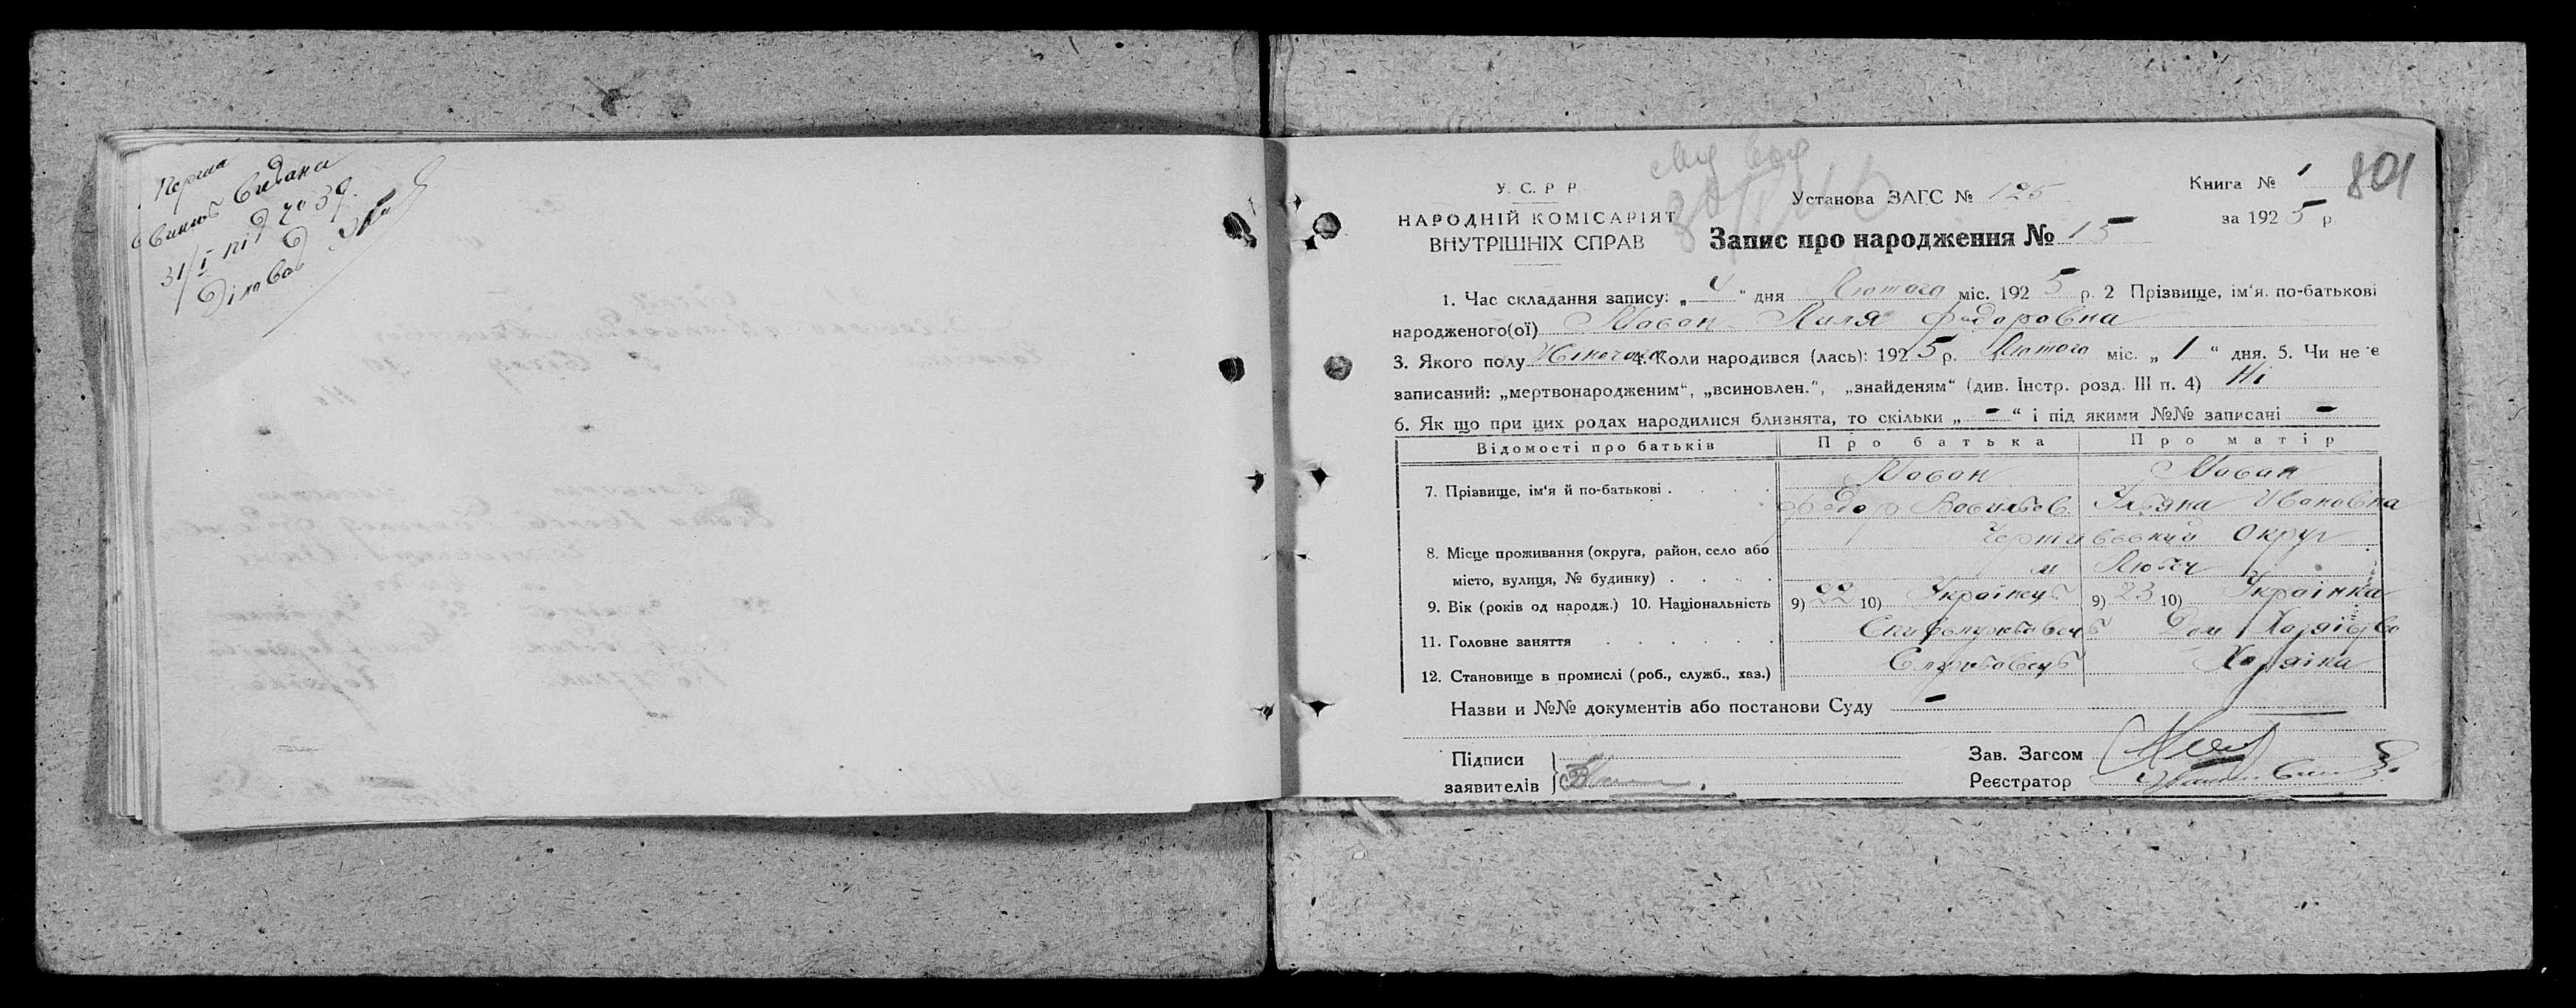 Перша
випис видана
31/I під № 39.
Діловод
801
У. С. Р. Р.
НАРОДНІЙ КОМІСАРІЯТ
ВНУТРІШНІХ СПРАВ
Установа ЗАГС № 125
Книга № 1
за 1925 р.
Запис про народження № 15
1. Час складання запису: „4“ дня Лютого міс. 1925 р. 2 Прізвище, ім'я. по-батькові
народженого(ої) Мосон Лиля Федоровна
3. Якого полу Жіночого 4. Коли народився (лась): 1925 р. Лютого міс. „1“ дня. 5. Чи не є
записаний: „мертвонародженим“, „всиновлен.“, „знайденям“ (див. Інстр. розд. III п. 4) Ні
6. Як що при цих родах народилися близнята, то скільки „-“ і під якими №№ записані -
Відомості про батьків Про батька Про матір
7. Прізвище, ім'я й по-батькові . Мосон Мосон
Федор Васильев Ульяна Ивановна
8. Місце проживання (округа, район, село або Чернигівский Округ
місто, вулиця, № будинку) . м Любеч
9. Вік (років од народж.) 10. Національність 9) 22 10) Українець 9) 23 10) Українка
11. Головне заняття Дом Хазяйство
12. Становище в промислі (роб., служб., хаз.) Службовець Хазяіка
Назви и №№ документів або постанови Суду -
Підписи
заявителів
Зав. Загсом
Реєстратор